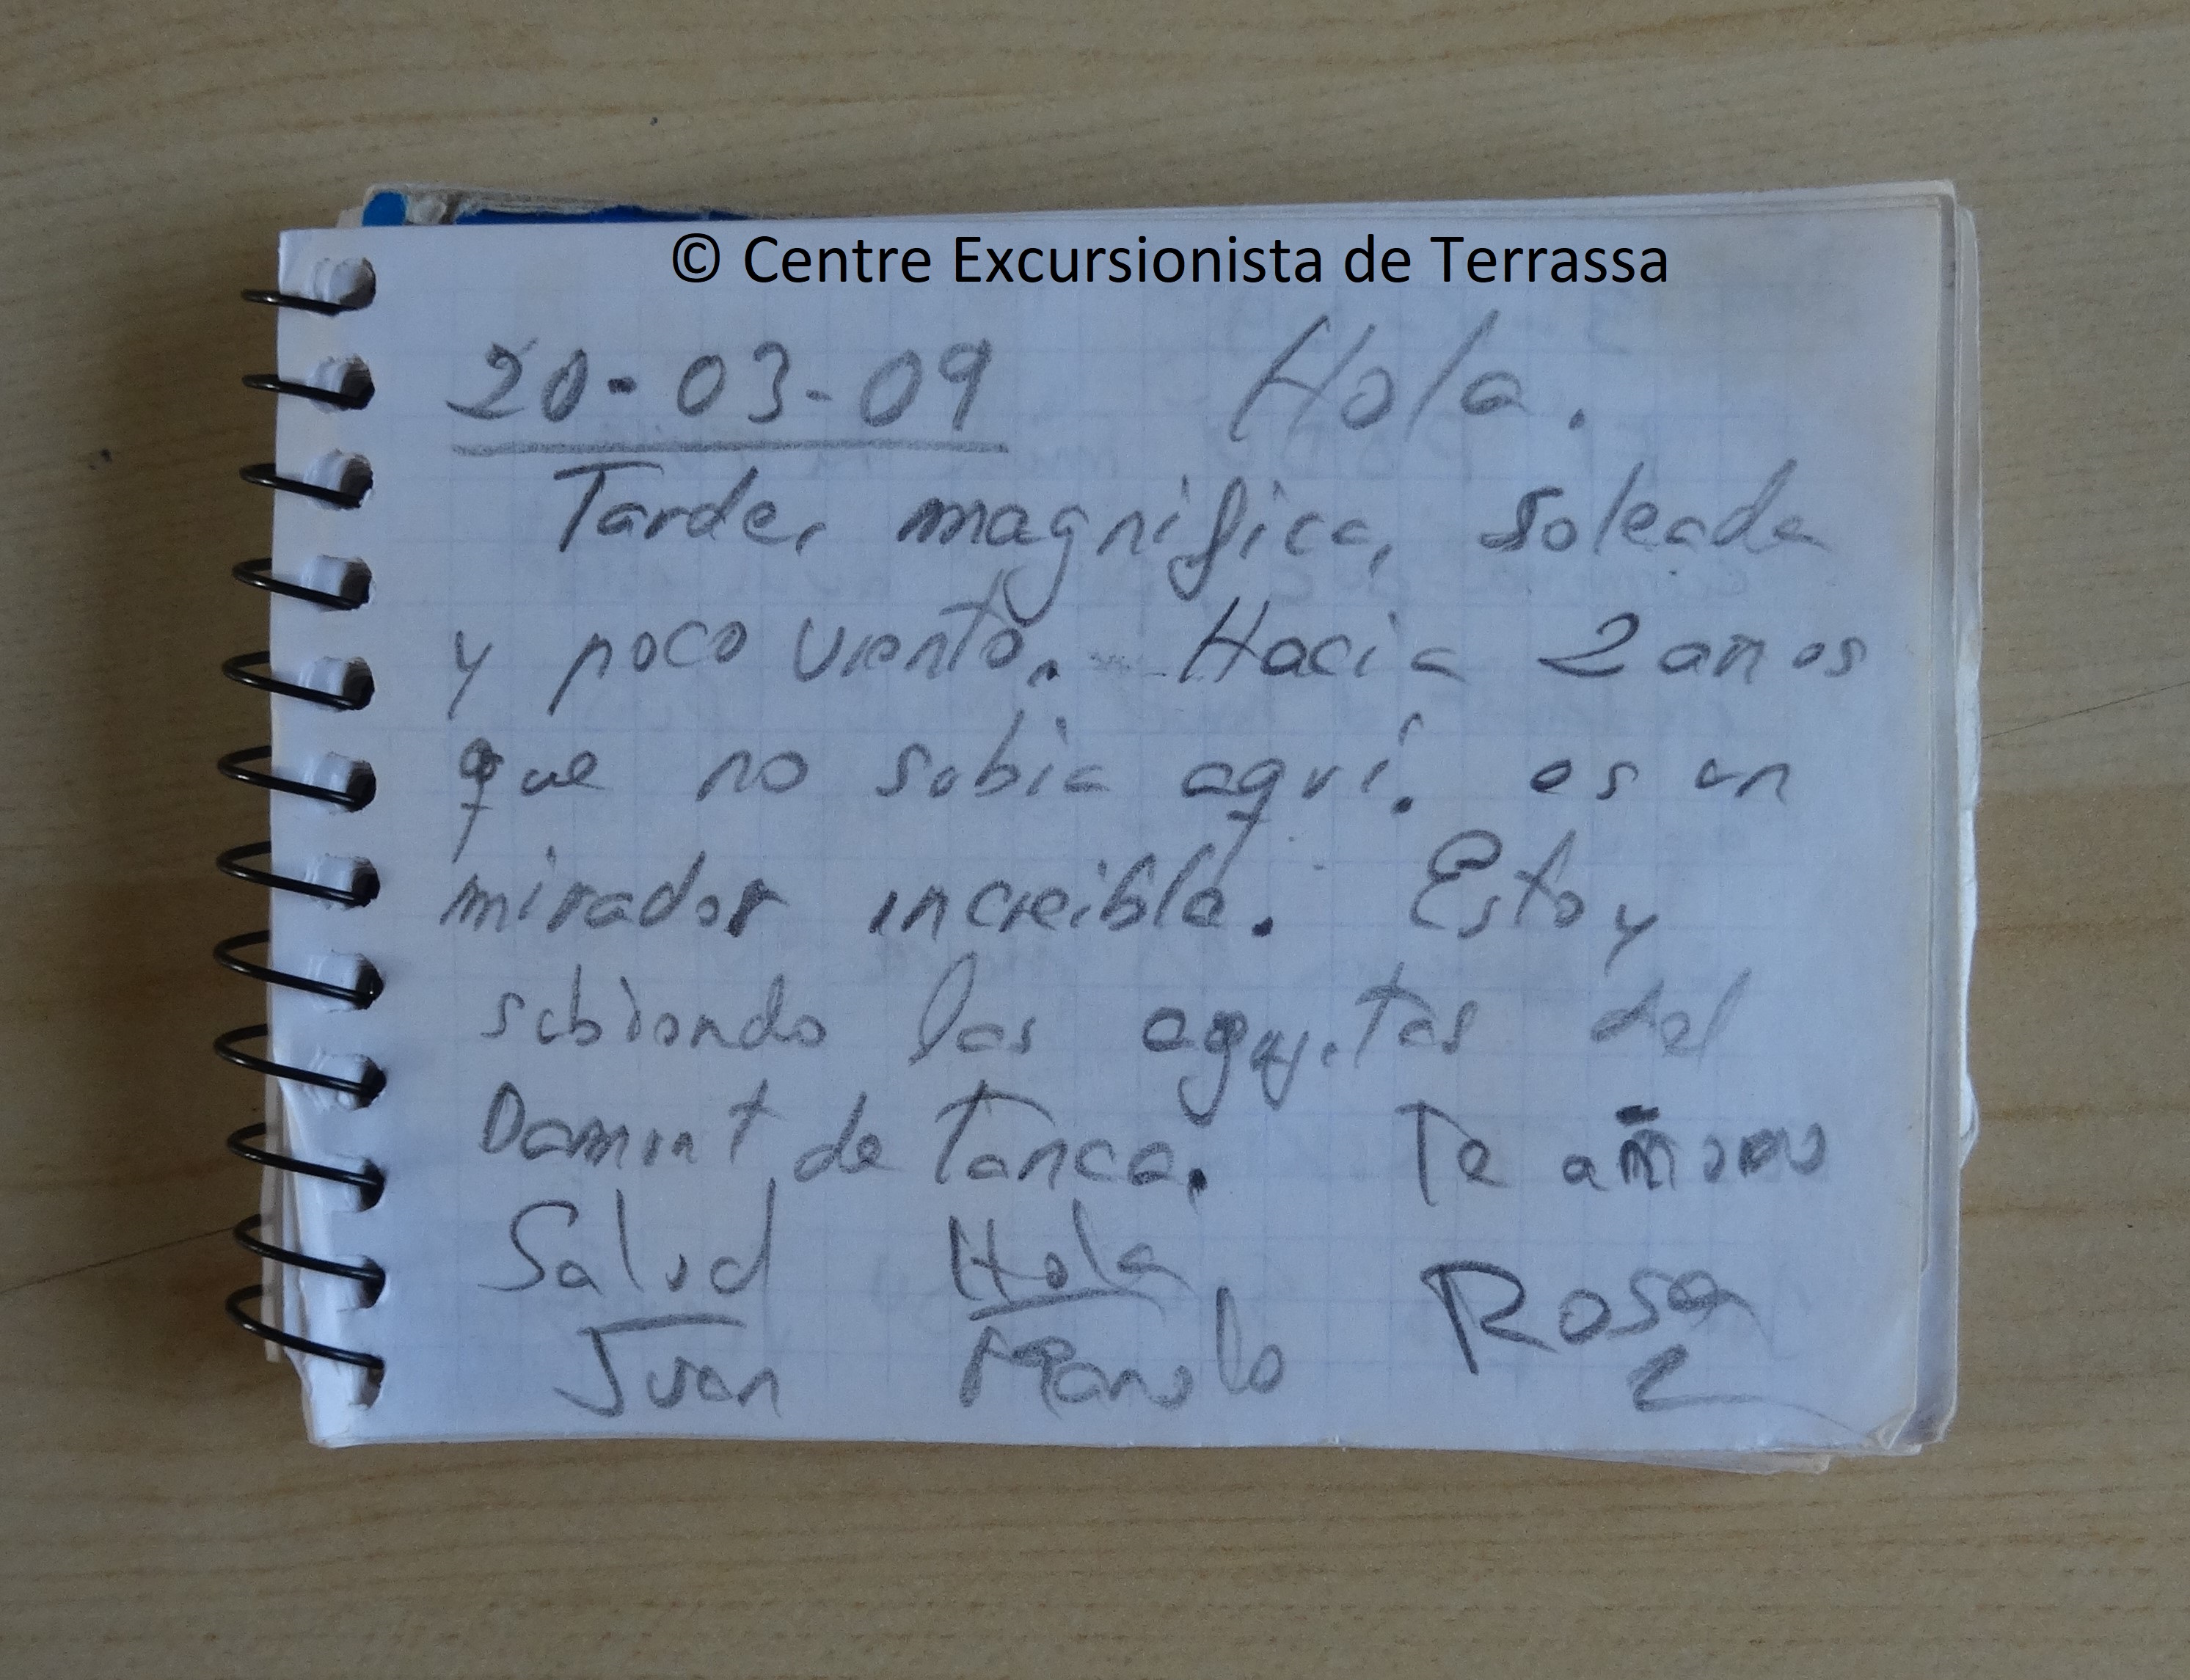 © Centre Excursionista de Terrassa
20-03-09 Hola.
Tarde, magnifica, soleada
y poco viento. Hacia 2 años
que no subia aquí. es un
mirador increible. Estoy
subiendo las agujitas del
Damunt de Tanca. Te añoro
Salud Hola Rosa
Juan Manolo